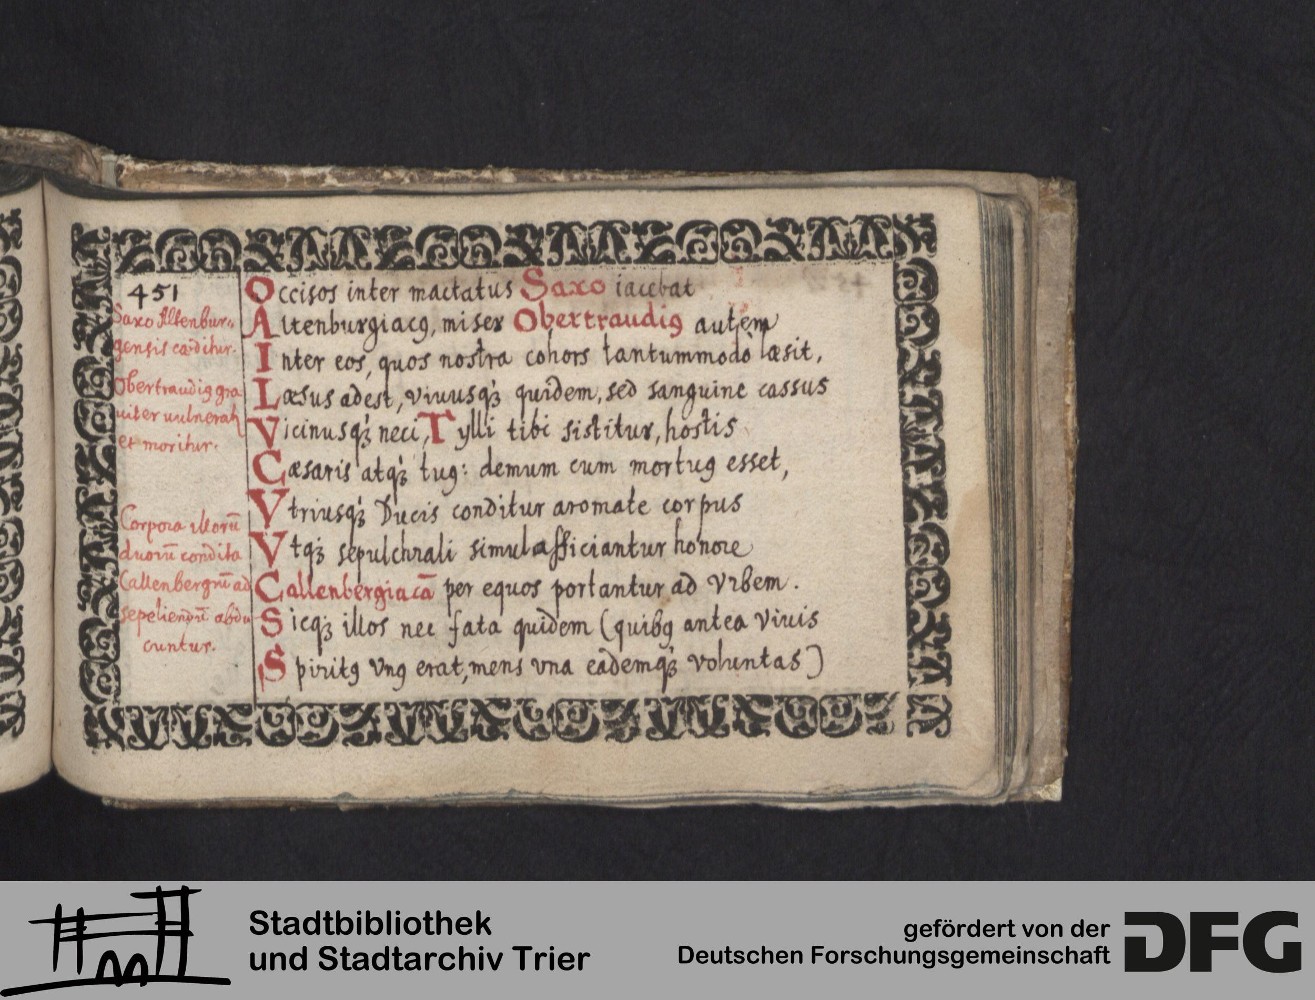 451
Saxo Altenbur-
gensis cæditur.
Obertraudiꝰ gra
uiter uulneratꝰ
et moritur.
Corpora illorū
duorū condita
Callenbergnū ad
sepeliendū abdu
cuntur.
Occisos inter mactatus Saxo iacebat
Altenburgiacꝰ, miser Obertraudiꝰ autem
Inter eos, quos nostra cohors tantummodò læsit,
Læsus adest, viuusqꝫ quidem, sed sanguine cassus
Vicinusqꝫ neci, Tylli tibi sistitur, hostis
Cæsaris atqꝫ tuꝰ: demum cum mortuꝰ esset,
Vtriusqꝫ Ducis conditur aromate corpus
Vtqꝫ sepulchrali simul afficiantur honore
Callenbergiacā per equos portantur ad vrbem.
Sicqꝫ illos nec fata quidem (quibꝰ antea viuis
Spiritꝰ vnꝰ erat, mens vna eademqꝫ voluntas)
Stadtbibliothek
und Stadtarchiv Trier
gefördert von der
Deutschen Forschungsgemeinschaft
DFG